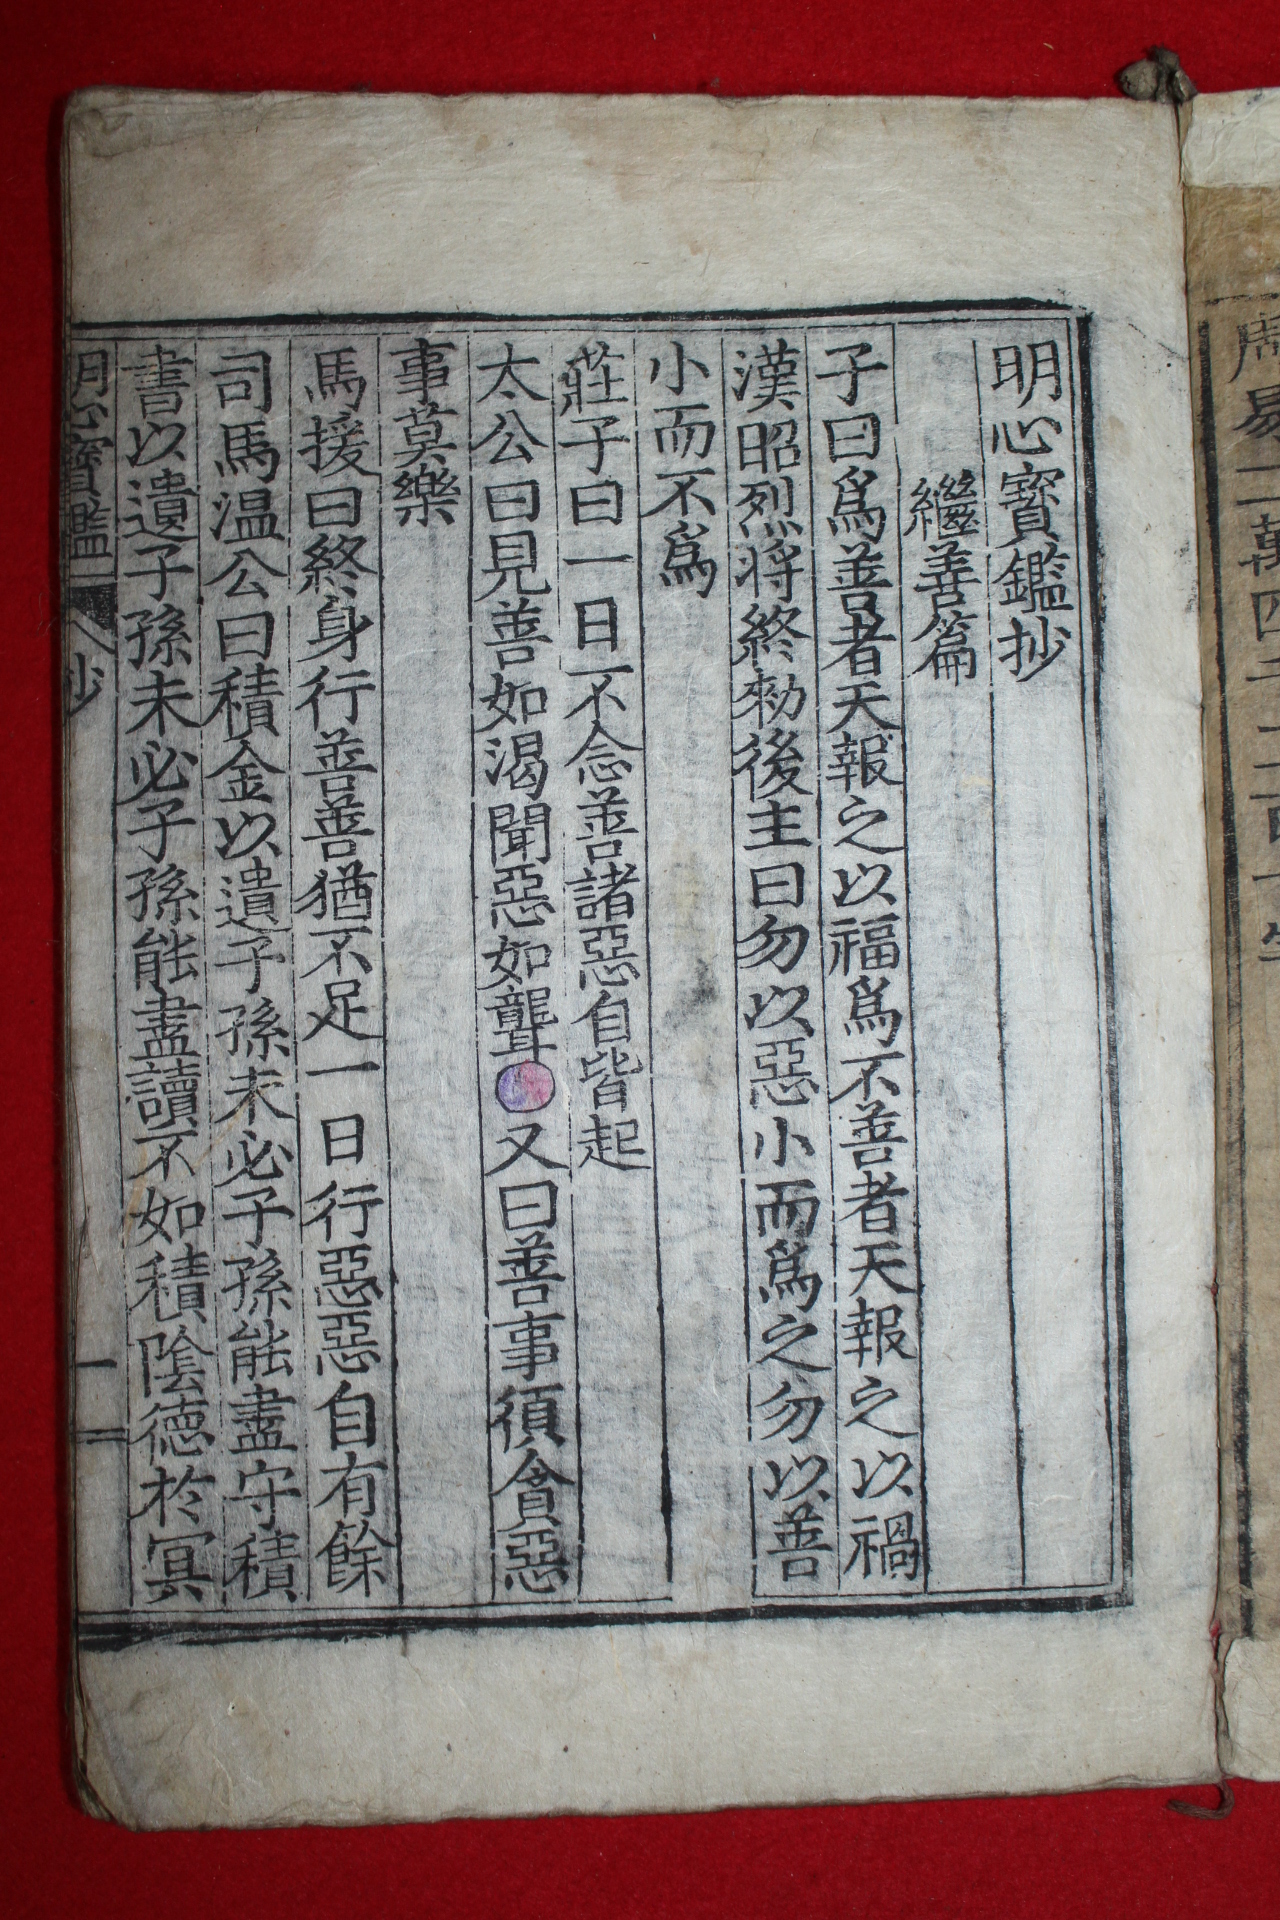 明心寶鑑抄
繼善篇
子曰爲善者天報之以福爲不善者天報之以禍
漢昭烈將終勑後主曰勿以惡小而爲之勿以善
小而不爲
莊子曰一日不念善諸惡自皆起
太公曰見善如渴聞惡如聾又曰善事須貪惡
事莫樂
馬援曰終身行善善猶不足一日行惡惡自有餘
司馬温公曰積金以遺子孫未必子孫能盡守積
書以遺子孫未必子孫能盡讀不如積陰德於冥
明心寶鑑 抄 一